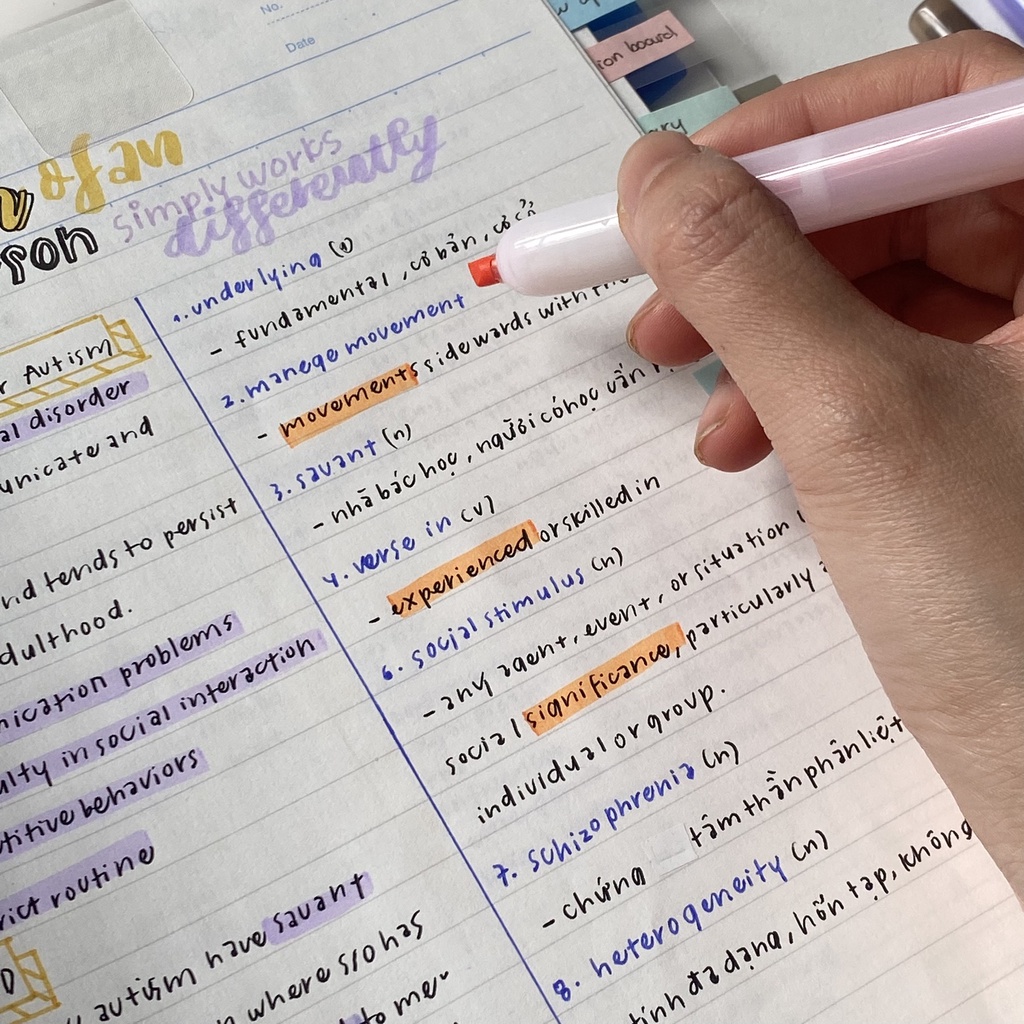 No.
Date
ion board
ary
of an
son
simply works
differently
r Autism
al disorder
unicate and
nd tends to persist
dulthood.
nication problems
ulty in social interaction
titive behaviors
rict routine
D
autism have savant
n where s/o has
to me
1. underlying (a)
- fundamental, cơ bản, cơ
2. manege movement
- movements sidewards with
3. savant (n)
- nhà bác học, người có học vấn
4. verse in (v)
- experienced or skilled in
6. social stimulus (n)
- any agent, event, or situation
social significance, particularly
individual or group.
7. schizophrenia (n)
- chứng tâm thần phân liệt
8. heterogeneity (n)
tính đa dạng, hỗn tạp, không